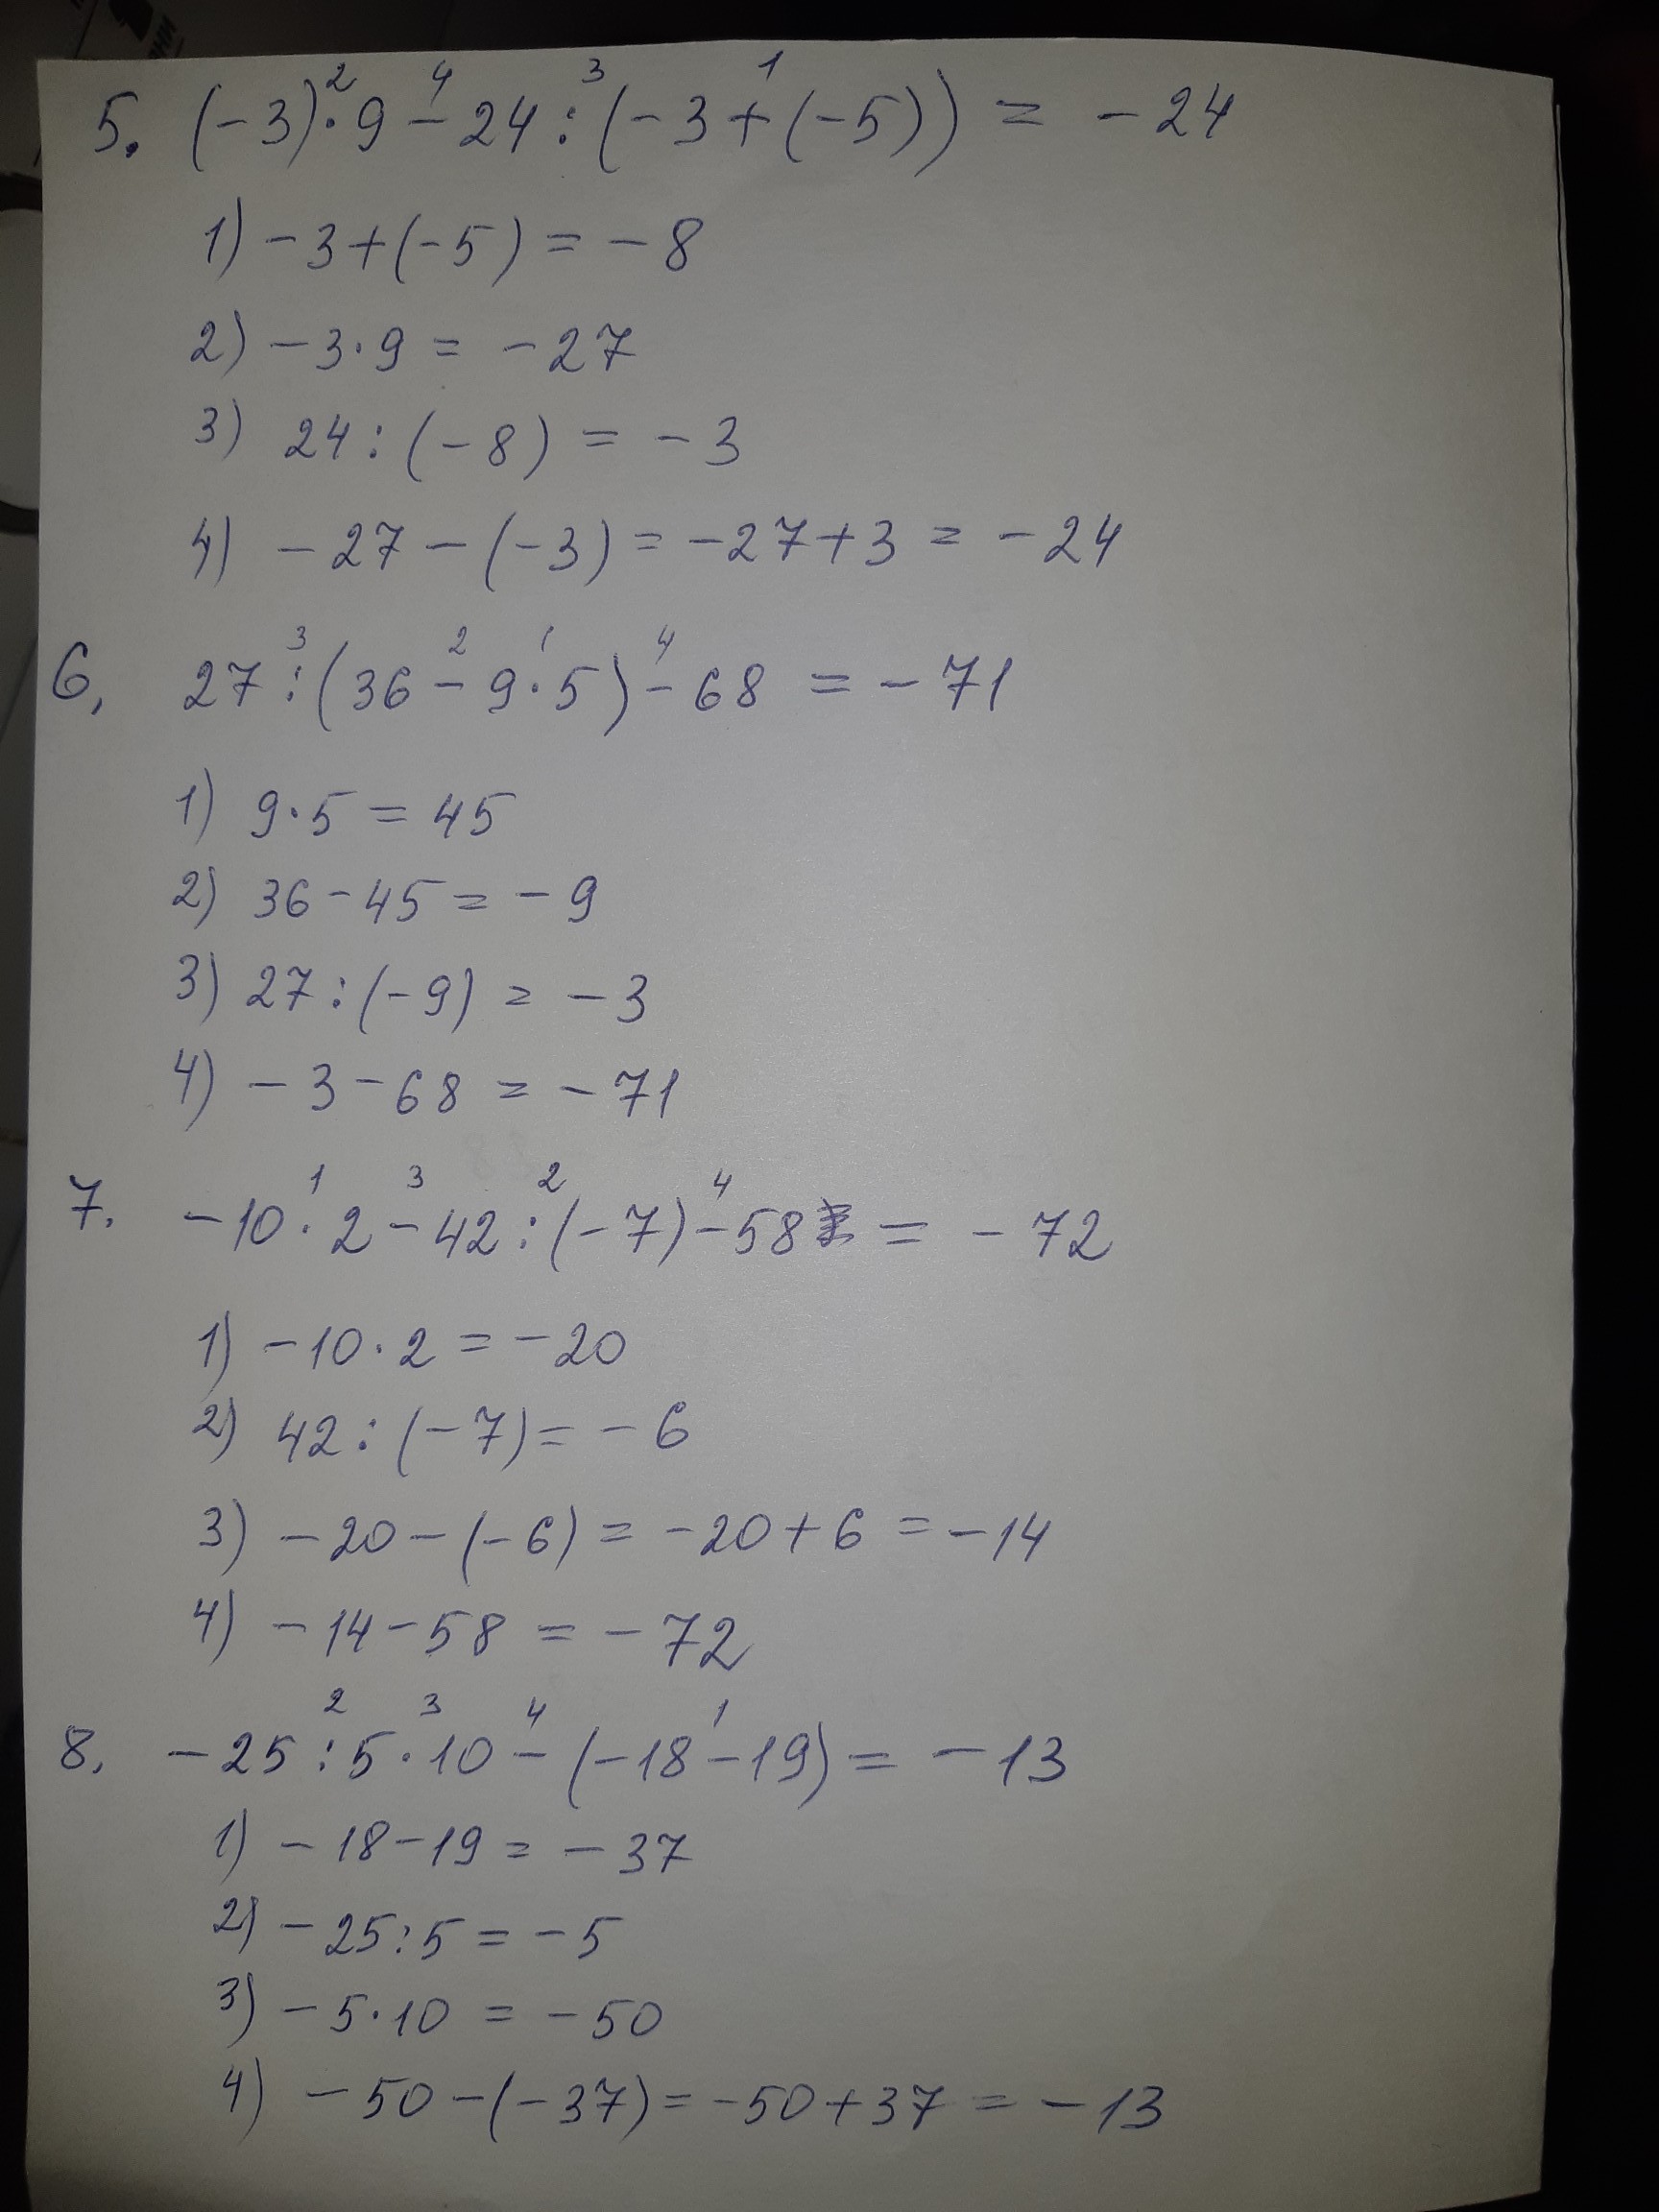 5. (-3)·9-24:(-3+(-5)) = -24
2 4 3 1
1) -3+(-5) = -8
2) -3·9 = -27
3) 24:(-8) = -3
4) -27-(-3) = -27+3 = -24
3 2 1 4
6, 27:(36-9·5)-68 = -71
1) 9·5 = 45
2) 36-45 = -9
3) 27:(-9) = -3
4) -3-68 = -71
1 3 2 4
7. -10·2-42:(-7)-58 = -72
1) -10·2 = -20
2) 42:(-7) = -6
3) -20-(-6) = -20+6 = -14
4) -14-58 = -72
2 3 4 1
8. -25:5·10-(-18-19) = -13
1) -18-19 = -37
2) -25:5 = -5
3) -5·10 = -50
4) -50-(-37) = -50+37 = -13